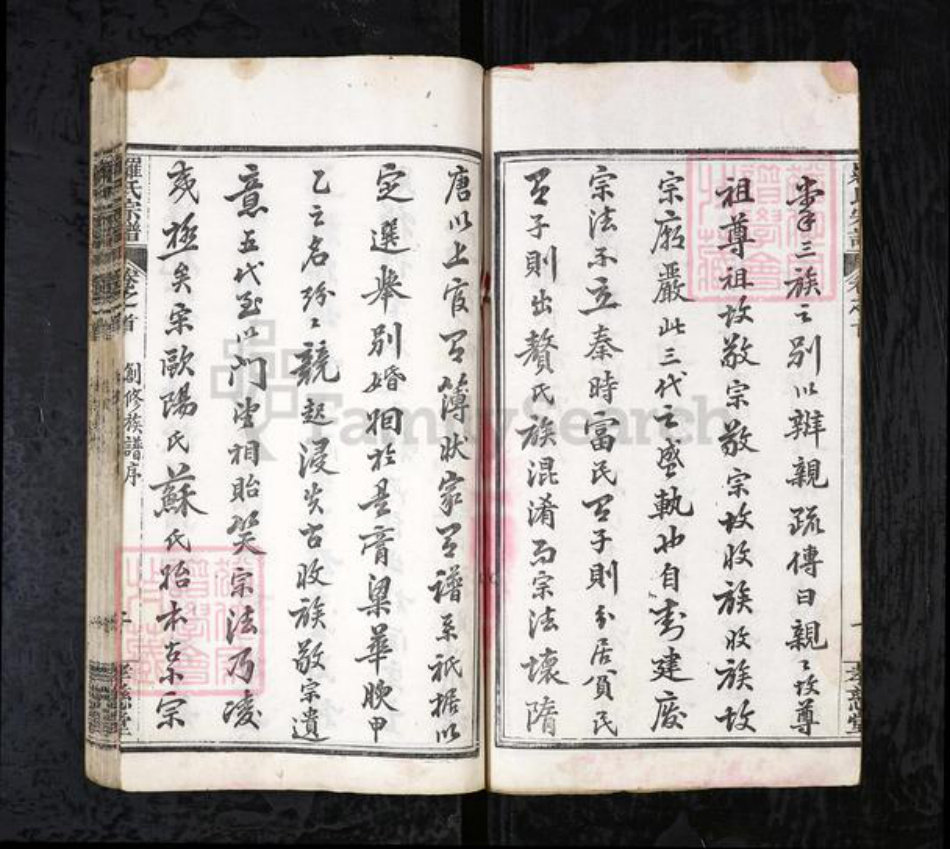 掌三族之別以辨親疏傳曰親〻故尊
祖尊祖故敬宗敬宗故收族收族故
宗廟嚴此三代之盛軌也自封建廢
宗法不立秦時富民有子則分居貧民
有子則出贅氏族混淆而宗法壞隋
唐以上官有簿狀家有譜系祇據以
定選舉別婚姻於是膏粱華腴甲
乙之名紛〻競起浸失古收族敬宗遺
意五代至以門望相貽笑宗法乃凌
夷極矣宋歐陽氏蘇氏始本大小宗
羅氏宗譜
卷之首
創修族譜序
孝慈堂
FamilySearch